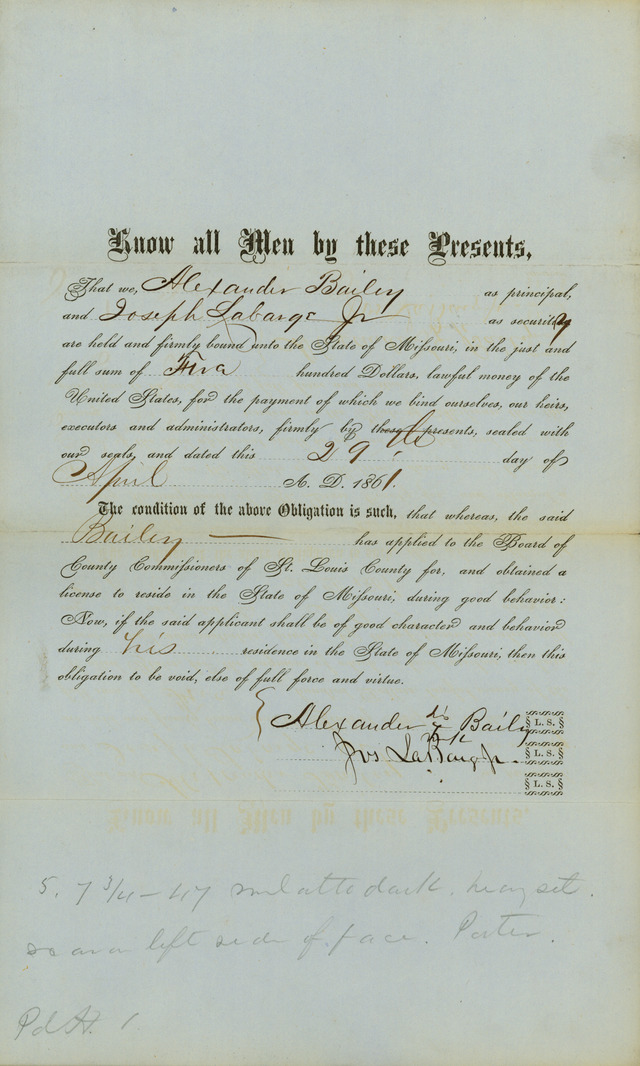 Know all Men by these Presents,
That we, Alexander Bailey as principal,
and Joseph Labarge Jr as security
are held and firmly bound unto the State of Missouri, in the just and
full sum of Five hundred Dollars, lawful money of the
United States, for the payment of which we bind ourselves, our heirs,
executors and administrators, firmly by these presents, sealed with
our seals, and dated this 29 day of
April A. D. 1861.
The condition of the above Obligation is such, that whereas, the said
Bailey has applied to the Board of
County Commissioners of St. Louis County for, and obtained a
license to reside in the State of Missouri, during good behavior:
Now, if the said applicant shall be of good character and behavior
during his residence in the State of Missouri, then this
obligation to be void, else of full force and virtue.
Alexander his Bailey L. S.
mark
Jos LaBarge Jr. L. S.
L. S.
5. 7 3/4 - 47 mulatto dark. heavy set.
scar on left side of face. Porter.